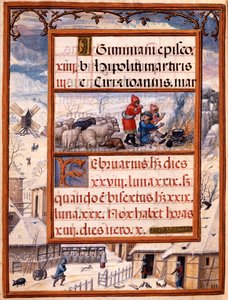 Gummari episco.
xiii b Hipoliti martiris
ii c Cirici Ioannis. mar
FEbruarius hz dies
xxviii. luna. xxix. sz
quando ē bisextus hz xxix.
luna. xxx. Nox habet horas
xiiii. dies vero. x.